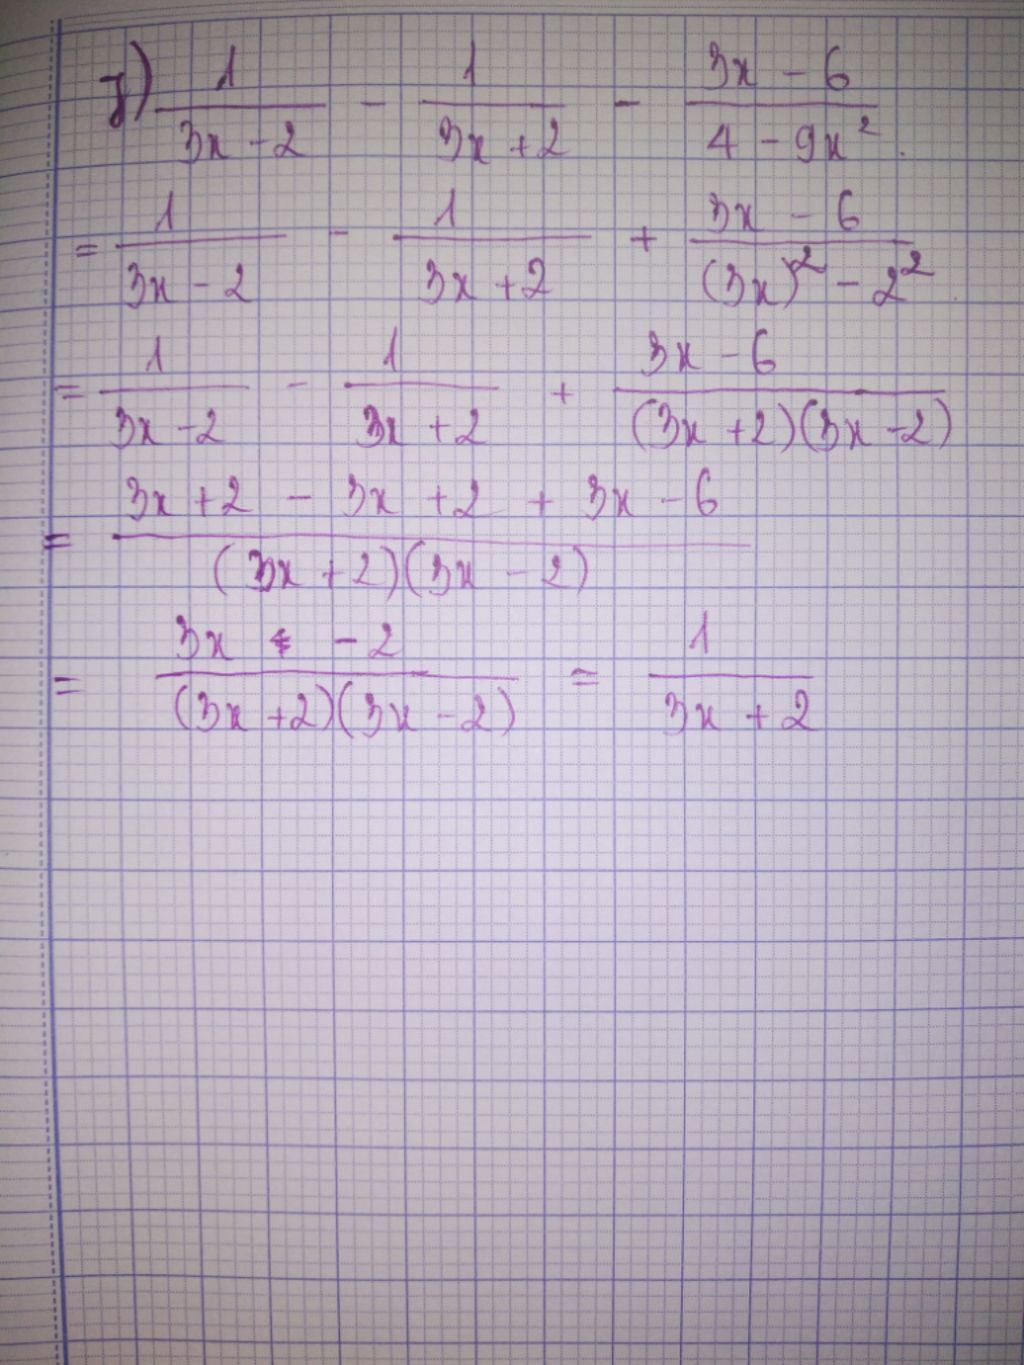 y) 1/(3x - 2) - 1/(3x + 2) - (3x - 6)/(4 - 9x²).
= 1/(3x - 2) - 1/(3x + 2) + (3x - 6)/((3x)² - 2²)
= 1/(3x - 2) - 1/(3x + 2) + (3x - 6)/((3x + 2)(3x - 2))
= (3x + 2 - 3x + 2 + 3x - 6)/((3x + 2)(3x - 2))
= (3x - 2)/((3x + 2)(3x - 2)) = 1/(3x + 2)